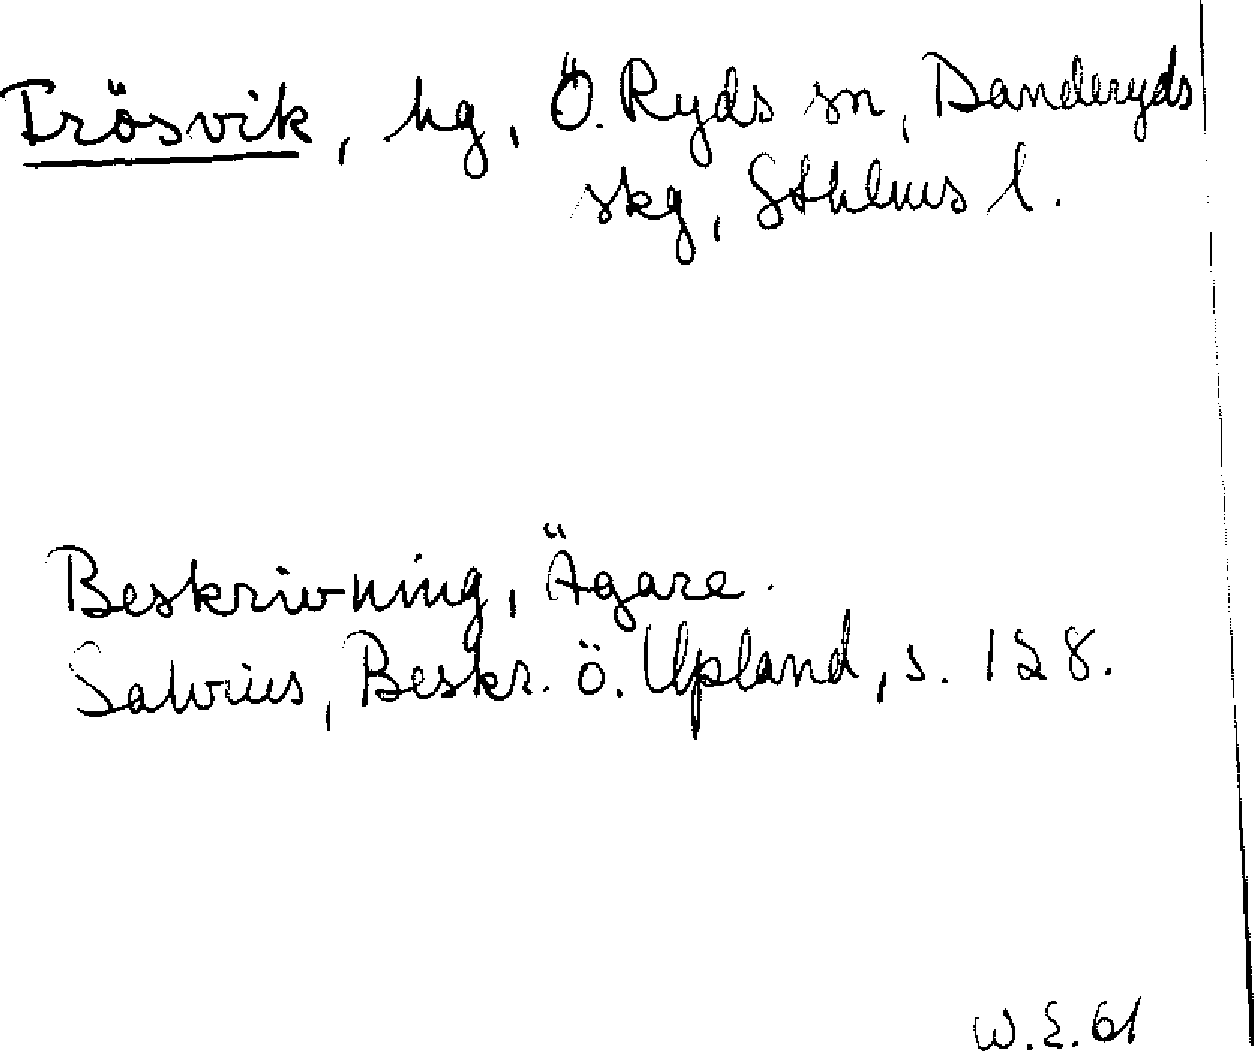 Trösvik, hg, Ö. Ryds sn, Danderyds
skg, Sthlms l.
Beskrivning, Ägare.
Salvius, Beskr. ö. Upland, s. 128.
W.E. 61